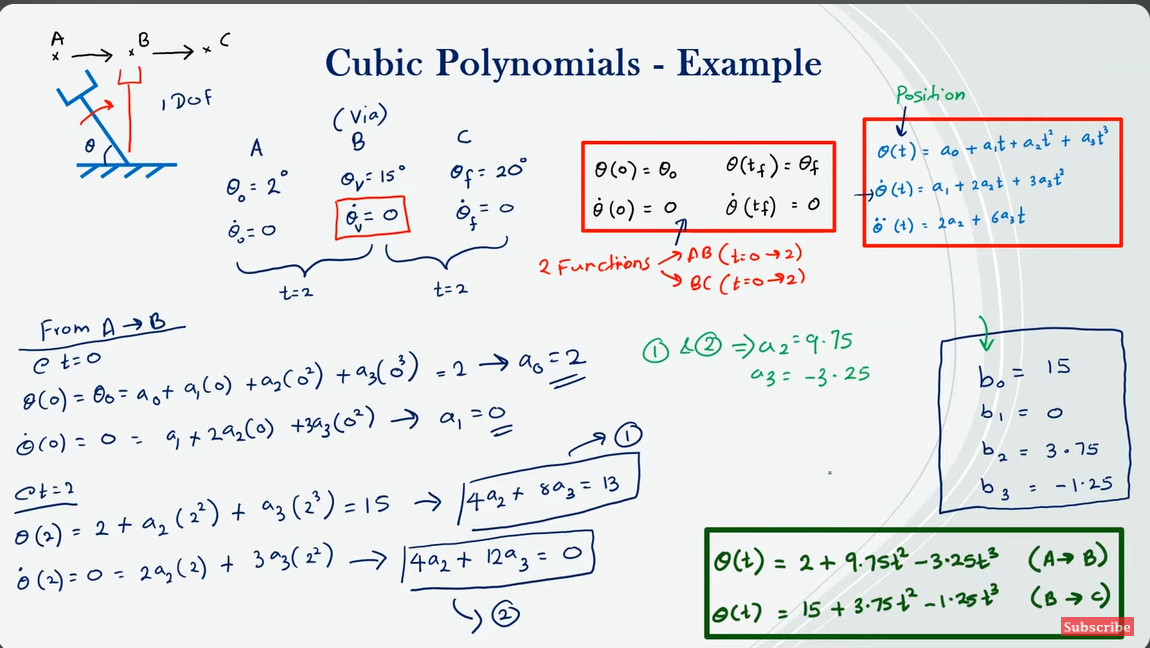 Cubic Polynomials - Example
A → B → C
1 DOF
θ
(Via)
A B C
θ₀ = 2° θᵥ = 15° θf = 20°
θ̇₀ = 0 θ̇ᵥ = 0 θ̇f = 0
t=2 t=2
θ(0) = θ₀ θ(tf) = θf
θ̇(0) = 0 θ̇(tf) = 0
2 Functions → AB (t=0→2)
→ BC (t=0→2)
Position
θ(t) = a₀ + a₁t + a₂t² + a₃t³
→ θ̇(t) = a₁ + 2a₂t + 3a₃t²
θ̈(t) = 2a₂ + 6a₃t
From A → B
@ t=0
θ(0) = θ₀ = a₀ + a₁(0) + a₂(0²) + a₃(0³) = 2 → a₀ = 2
θ̇(0) = 0 = a₁ + 2a₂(0) + 3a₃(0²) → a₁ = 0
@t=2
θ(2) = 2 + a₂(2²) + a₃(2³) = 15 → 4a₂ + 8a₃ = 13 → ①
θ̇(2) = 0 = 2a₂(2) + 3a₃(2²) → 4a₂ + 12a₃ = 0
→ ②
① & ② ⇒ a₂ = 9.75
a₃ = -3.25
b₀ = 15
b₁ = 0
b₂ = 3.75
b₃ = -1.25
θ(t) = 2 + 9.75t² - 3.25t³ (A → B)
θ(t) = 15 + 3.75t² - 1.25t³ (B → C)
Subscribe